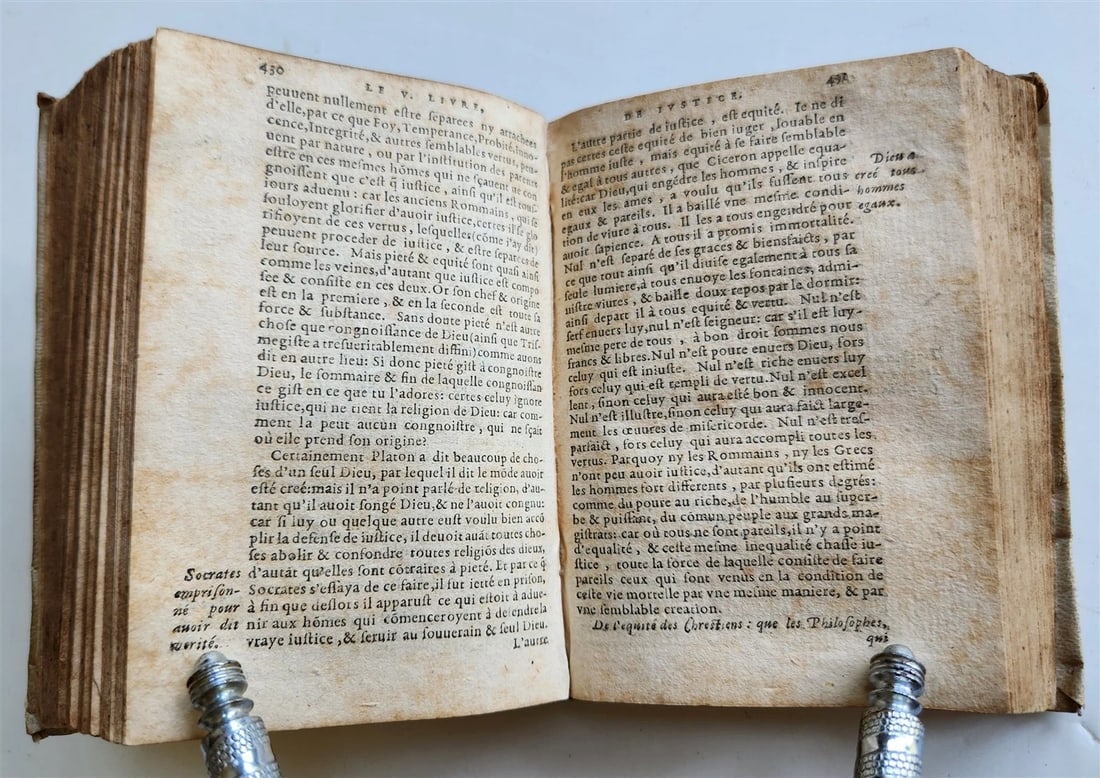 430
LE V. LIVRE,
peuuent nullement estre separees ny attachees
d'elle, par ce que Foy, Temperance, Probité, Inno-
cence, Integrité, & autres semblables vertus, peu-
uent par nature, ou par l'institution des parents
estre en ces mesmes hõmes qui ne sçauent ne con
gnoissent que c'est q̃ iustice, ainsi qu'il est tous-
iours aduenu: car les anciens Rommains, qui se
souloyent glorifier d'auoir iustice, certes il se glo
rifioyent de ces vertus, lesquelles (cõme i'ay dit)
peuuent proceder de iustice, & estre separees de
leur source. Mais pieté & equité sont quasi ainsi
comme les veines, d'autant que iustice est compo
see & consiste en ces deux. Or son chef & origine
est en la premiere, & en la seconde est toute sa
force & substance. Sans doute pieté n'est autre
chose que congnoissance de Dieu (ainsi que Tris-
megiste a tresueritablement diffini) comme auons
dit en autre lieu: Si donc pieté gist à congnoistre
Dieu, le sommaire & fin de laquelle congnoissan
ce gist en ce que tu l'adores: certes celuy ignore
iustice, qui ne tient la religion de Dieu: car com-
ment la peut aucun congnoistre, qui ne sçait
où elle prend son origine?
Certainement Platon a dit beaucoup de cho-
ses d'un seul Dieu, par lequel il dit le mõde auoir
esté creé: mais il n'a point parlé de religion, d'au-
tant qu'il auoit songé Dieu, & ne l'auoit congnu:
car si luy ou quelque autre eust voulu bien accõ
plir la defense de iustice, il deuoit auãt toutes cho-
ses abolir & confondre toutes religiõs des dieux,
d'autãt qu'elles sont cõtraires à pieté. Et par ce q̃
Socrates s'essaya de ce faire, il fut ietté en prison,
à fin que deslors il apparust ce qui estoit à adue-
nir aux hõmes qui cõmenceroyent à defendre la
vraye iustice, & seruir au souuerain & seul Dieu.
Socrates
emprison-
né pour
auoir dit
verité.
L'autre
DE IVSTICE.
L'autre partie de iustice, est equité. Ie ne di
pas certes ceste equité de bien iuger, louable en
l'homme iuste, mais equité à se faire semblable
& egal à tous autres, que Ciceron appelle equa-
lité: car Dieu, qui engẽdre les hommes, & inspire
en eux les ames, a voulu qu'ils fussent tous
egaux & pareils. Il a baillé vne mesme condi-
tion de viure à tous. Il les a tous engendré pour
auoir sapience. A tous il a promis immortalité.
Nul n'est separé de ses graces & biensfaicts, par
ce que tout ainsi qu'il diuise egalement à tous sa
seule lumiere, à tous enuoye les fontaines, admi-
nistre viures, & baille doux repos par le dormir:
ainsi depart il à tous equité & vertu. Nul n'est
serf enuers luy, nul n'est seigneur: car s'il est luy-
mesme pere de tous, à bon droit sommes nous
francs & libres. Nul n'est poure enuers Dieu, fors
celuy qui est iniuste. Nul n'est riche enuers luy
fors celuy qui est rempli de vertu. Nul n'est excel
lent, sinon celuy qui aura esté bon & innocent.
Nul n'est illustre, sinon celuy qui aura faict large-
ment les œuures de misericorde. Nul n'est tres-
parfaict, fors celuy qui aura accompli toutes les
vertus. Parquoy ny les Rommains, ny les Grecs
n'ont peu auoir iustice, d'autant qu'ils ont estimé
les hommes fort differents, par plusieurs degrés:
comme du poure au riche, de l'humble au super-
be & puissant, du cõmun peuple aux grands ma-
gistrats: car où tous ne sont pareils, il n'y a point
d'equalité, & ceste mesme inequalité chasse iu-
stice, toute la force de laquelle consiste de faire
pareils ceux qui sont venus en la condition de
ceste vie mortelle par vne mesme maniere, & par
vne semblable creation.
De l'equité des Chrestiens: que les Philosophes,
qui
Dieu a
creé tous
hommes
egaux.